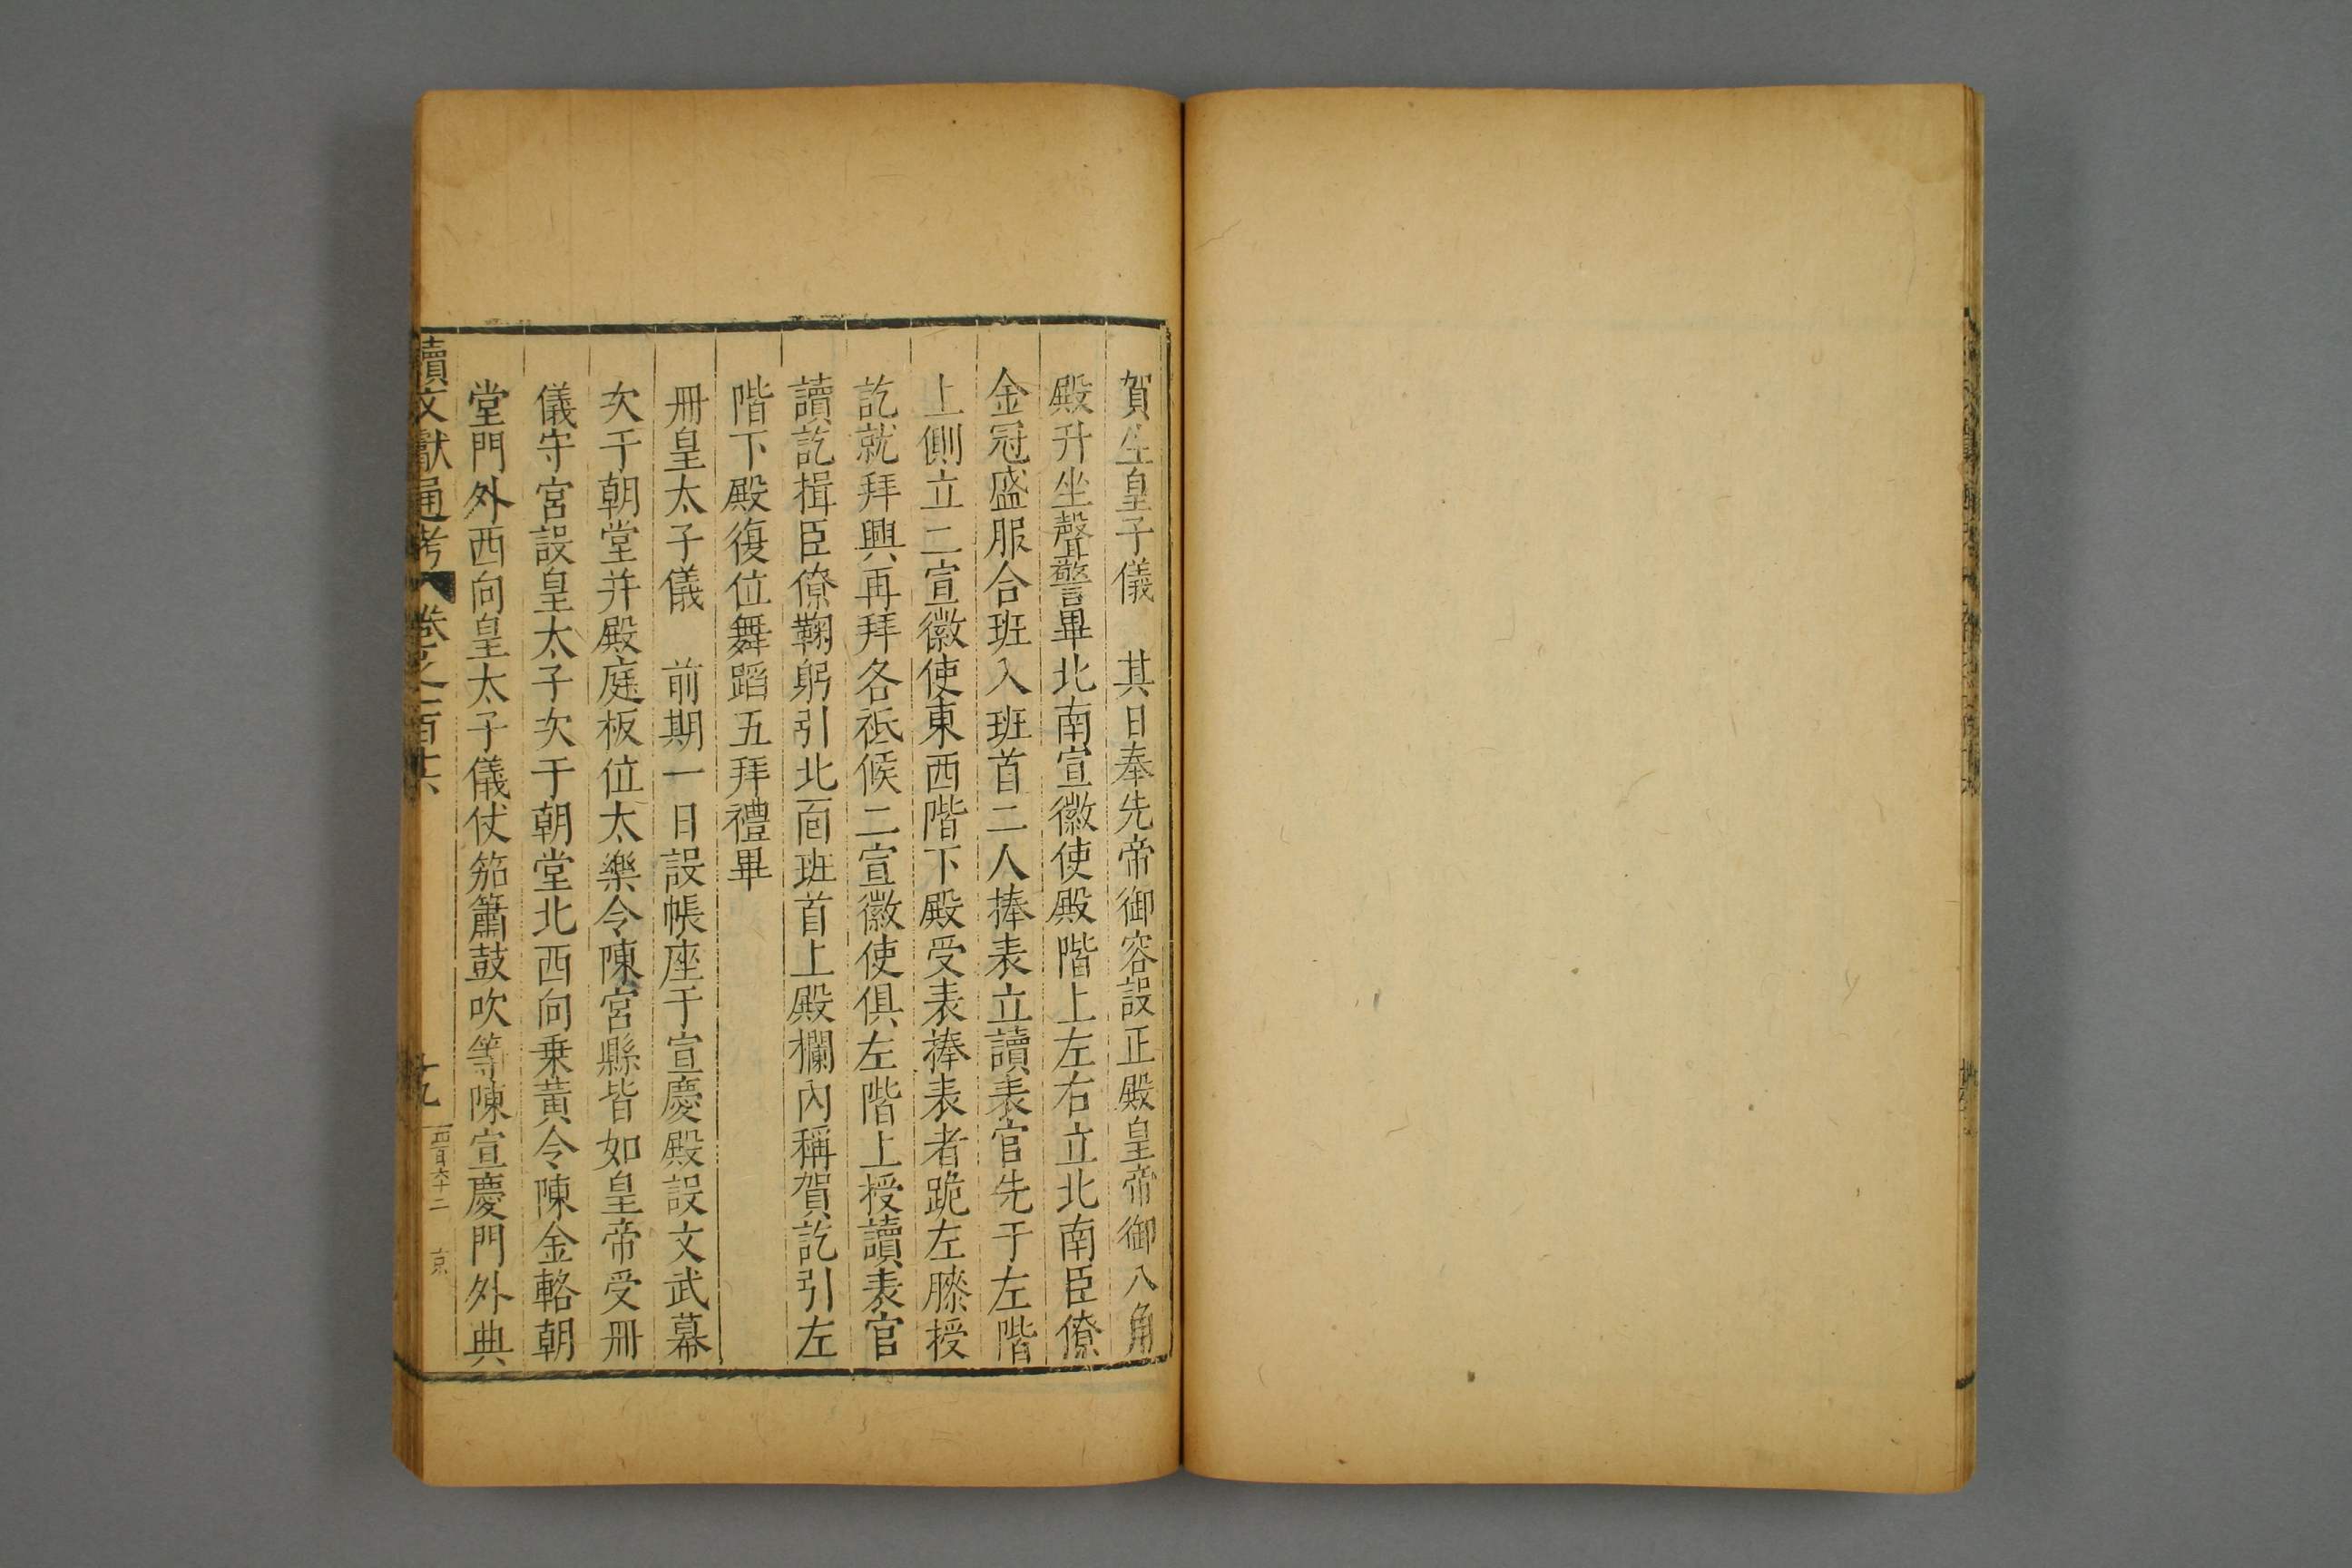 賀生皇子儀　其日奉先帝御容設正殿皇帝御八角
殿升坐聲警畢北南宣徽使殿階上左右立北南臣僚
金冠盛服合班入班首二人捧表立讀表官先于左階
上側立二宣徽使東西階下殿受表捧表者跪左膝授
訖就拜興再拜各祗候二宣徽使俱左階上授讀表官
讀訖揖臣僚鞠躬引北面班首上殿欄內稱賀訖引左
階下殿復位舞蹈五拜禮畢
冊皇太子儀　前期一日設帳座于宣慶殿設文武幕
次于朝堂并殿庭板位太樂令陳宮縣皆如皇帝受冊
儀守宮設皇太子次于朝堂北西向乗黃令陳金輅朝
堂門外西向皇太子儀仗笳簫鼓吹等陳宣慶門外典
續文獻通考 卷之一百十六
十九
四百六十二 京